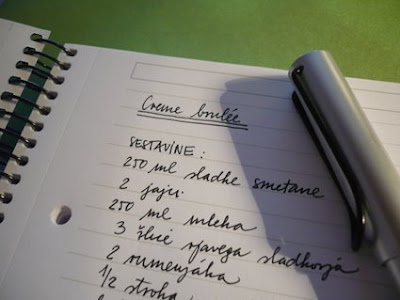 Creme brulée
SESTAVINE:
250 ml sladke smetane
2 jajci
250 ml mleka
3 žlice rjavega sladkorja
2 rumenjaka
1/2 stroka